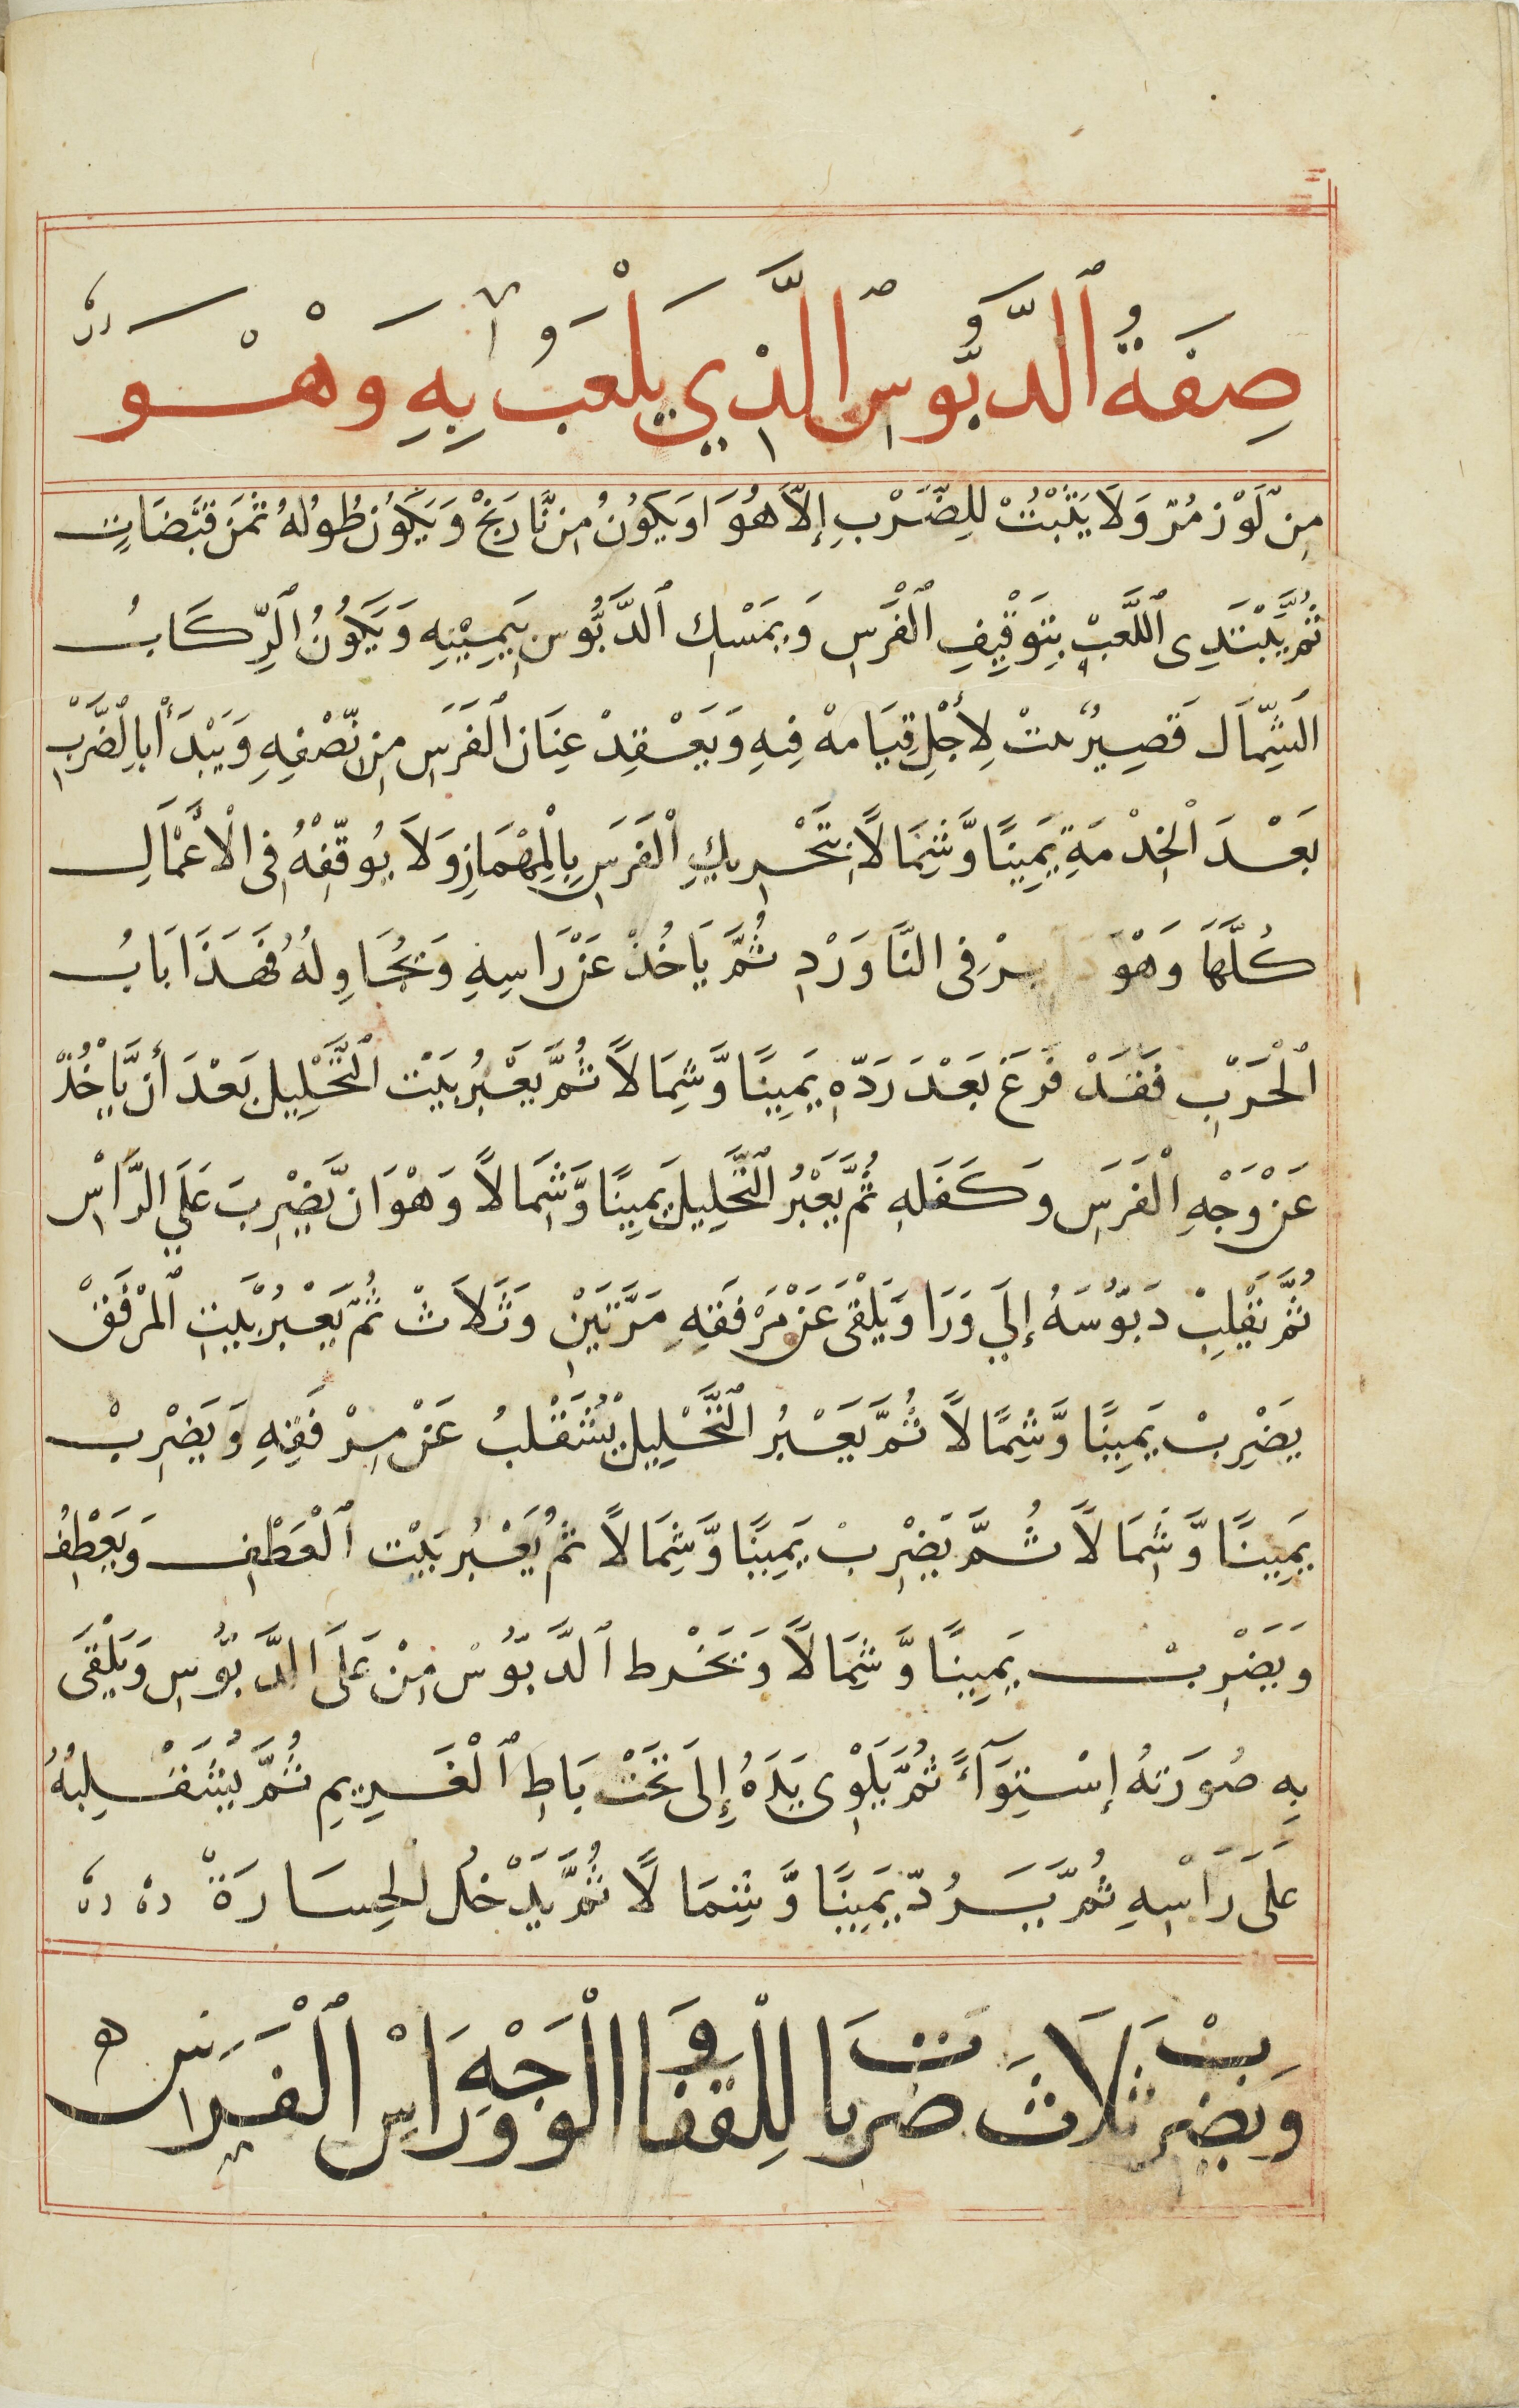 صِفَةُ ٱلدَّبُّوسِ ٱلَّذِي يَلْعَبُ بِهِ وَهْوَ
مِنْ لَوْز مُرّ وَلَا يَثْبُتْ لِلضَّرْبِ إِلَّا هُوَ اوَيَكُونُ مِن نَّارَنْجْ وَيَكُون طُولُهُ ثَمَن قَبَضَاتٍ
ثُمَّ يَبْتَدِى ٱللَّعِبْ بِتَوْقِيفِ ٱلْفَرَسِ وَيَمْسِك ٱلدَّبُّوس بِيَمِيْنِهِ وَيَكُونُ ٱلرِّكَابُ
الشِّمَال قَصِيرْ لِأَجْلِ قِيَامهْ فِيهِ وَيَعْقِدْ عِنَان ٱلْفَرَسِ مِن نِّصْفِهِ وَيَبْدَأْ بِالضَّرْبِ
بَعْدَ الْخِدْمَةِ يَمِينًا وَّشِمَالاً بِتَحْرِيكِ ٱلْفَرَسِ بِالْمِهْمَازِ وَلَا يُوقِّفْهُ فِى الْأَعْمَالِ
كُلَّهَا وَهْوَ فِى النَّاوَرْدِ ثُمَّ يَاخُذْ عَنْ رَاسِهِ وَيُحَاوِلُهُ فَهَذَا بَابُ
ٱلْحَرْبِ فَقَدْ فَرَغَ بَعْدَ رَدِّهِ يَمِينًا وَّشِمَالاً ثُمَّ يَعْبُرُ بَيْت ٱلتَّحْلِيل بَعْدَ أَن يَّاخُذْ
عَنْ وَجْهِ ٱلْفَرَسِ وَكَفَلِهِ ثُمَّ يَعْبُرُ ٱلتَّحْلِيل يَمِينًا وَّشِمَالاً وَهْوَ ان يَّضْرِبَ عَلَي الرَّاسْ
ثُمَّ يَقْلِبْ دَبّوُسَهُ إِلَي وَرَا وَيَلْقَى عَنْ مَرْفَقِهِ مَرَّتَيْنِ وَثَلَاثْ ثُمّ يَعْبُرُ بَيْتِ ٱلمَرْفَقْ
يَضْرِبْ يَمِينًا وَّشِمَالاً ثُمَّ يَعْبُرُ ٱلتَّحْلِيل يَتَقْلبُ عَنْ مِرْفَقِهِ وَيَضْرِبْ
يَمِينًا وَّشِمَالاً ثُمَّ يَضْرِبْ يَمِينًا وَّشِمَالاً ثُمَّ يَعْبُر بَيْت ٱلْعَطْفِ وَيَعْطِفُ
وَيَضْرِبْ يَمِينًا وَّشِمَالاً وَيَخْرط ٱلدَّبّوُسْ مِنْ عَلَى الدَّبّوُسِ وَيَلْقَى
بِهِ صُورَتهُ إِسْتِوَآءً ثُمَّ يَلْوِى يَدَهُ إِلَى تَحْت بَاطِ ٱلْغَرِيمِ ثُمَّ
عَلَى رَاسِهِ ثُمَّ يَرُدّ يَمِينًا وَّشِمَالاً ثُمَّ يَدْخُل الْخِسَارَةْ
وَيَضْرِبْ ثَلَاثَ ضَرْبَات لِلْقَفَا وَالْوَجْهِ وَرَاسِ ٱلْفَرَسِ